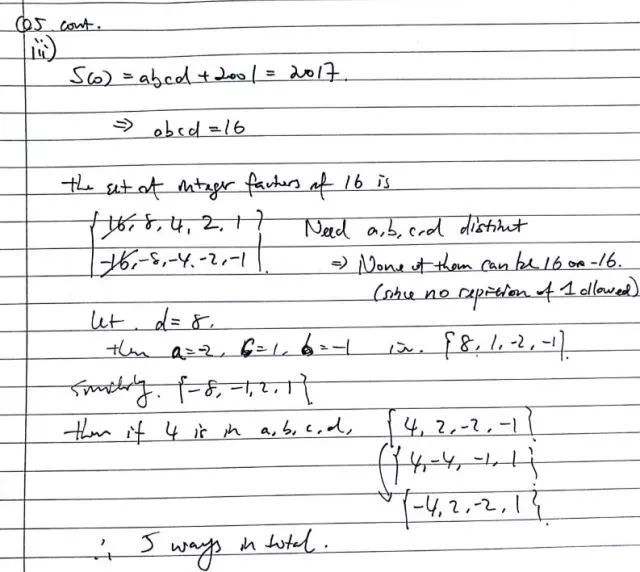 Q5 cont.
iii)
S(0) = abcd + 2001 = 2017.
⇒ abcd = 16
the set of integer factors of 16 is
{16, 8, 4, 2, 1 Need a, b, c, d distinct
-16, -8, -4, -2, -1} ⇒ None of them can be 16 or -16.
(since no repetition of 1 allowed)
let d = 8,
then a = -2, c = 1, b = -1 i.e. {8, 1, -2, -1}
Similarly. {-8, -1, 2, 1}
then if 4 is in a, b, c, d, {4, 2, -2, -1}
{4, -4, -1, 1}
{-4, 2, -2, 1}
∴ 5 ways in total.